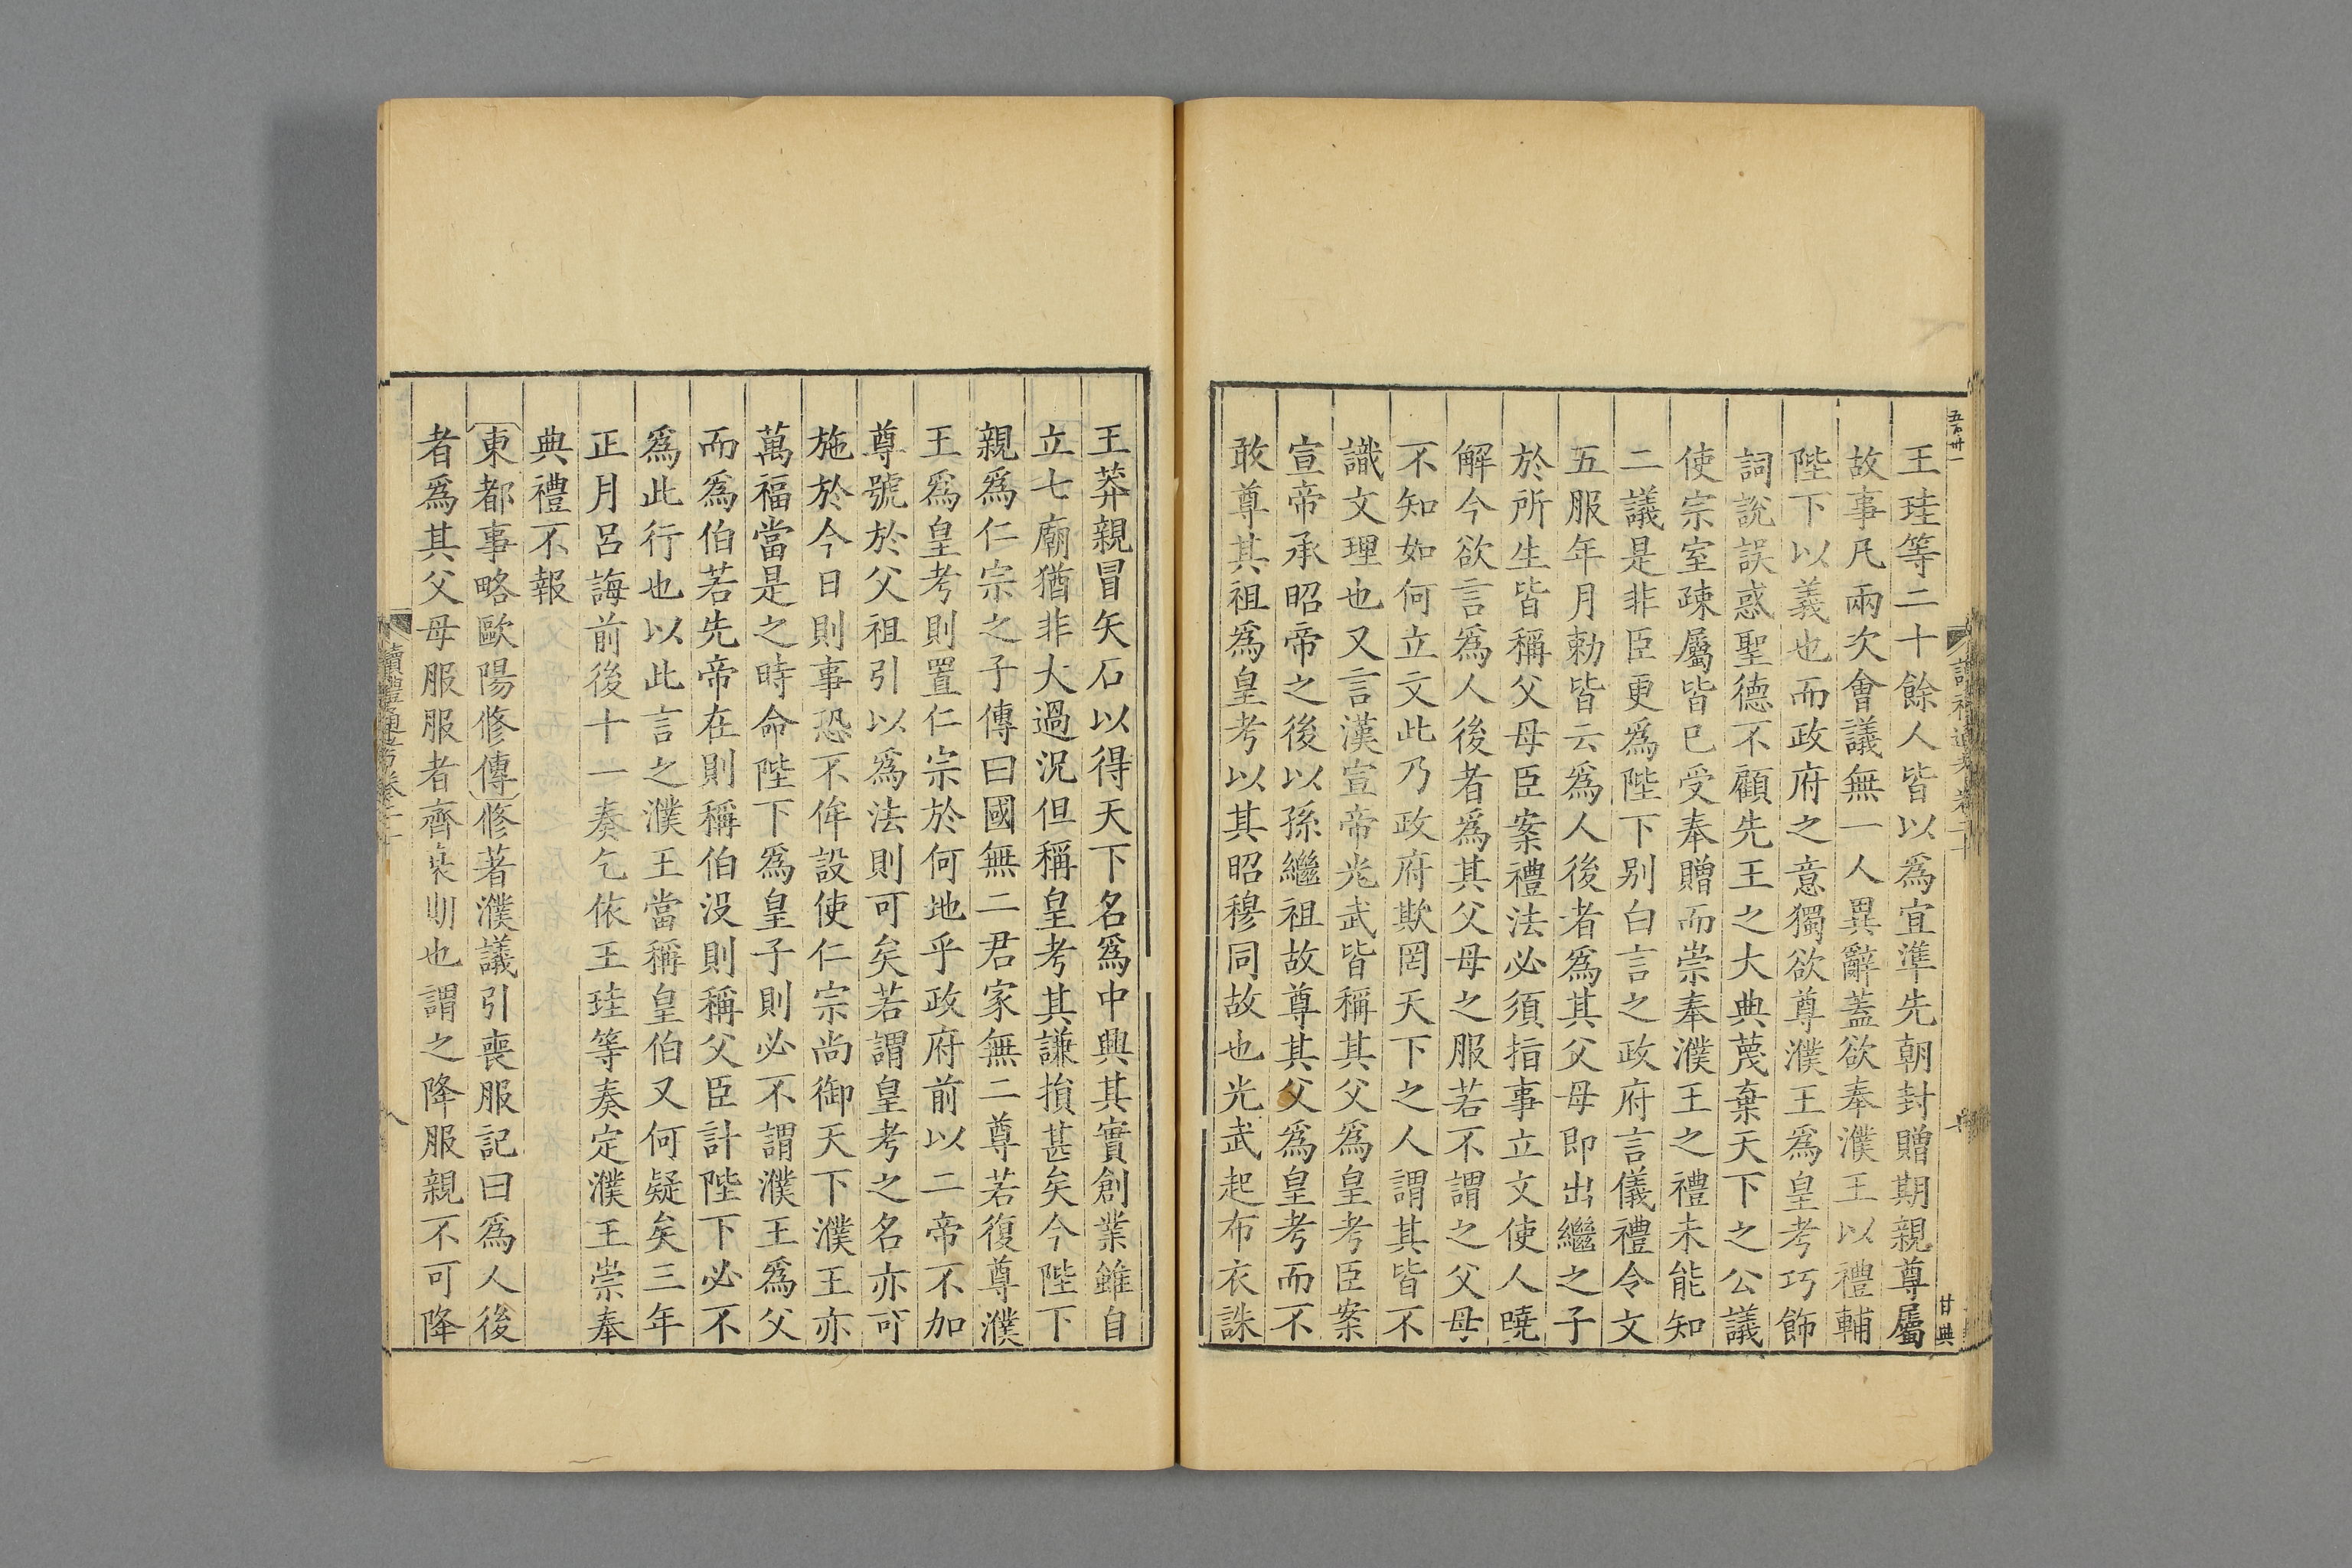 王珪等二十餘人皆以爲宜準先朝封贈期親尊屬
故事凡兩次會議無一人異辭蓋欲奉濮王以禮輔
陛下以義也而政府之意獨欲尊濮王爲皇考巧飾
詞說誤惑聖德不顧先王之大典蔑棄天下之公議
使宗室疎屬皆已受奉贈而崇奉濮王之禮未能知
二議是非臣更爲陛下别白言之政府言儀禮令文
五服年月勅皆云爲人後者爲其父母即出繼之子
於所生皆稱父母臣案禮法必須指事立文使人曉
解今欲言爲人後者爲其父母之服若不謂之父母
不知如何立文此乃政府欺罔天下之人謂其皆不
識文理也又言漢宣帝光武皆稱其父爲皇考臣案
宣帝承昭帝之後以孫繼祖故尊其父爲皇考而不
敢尊其祖爲皇考以其昭穆同故也光武起布衣誅
王莽親冒矢石以得天下名爲中興其實創業雖自
立七廟猶非大過況但稱皇考其謙損甚矣今陛下
親爲仁宗之子傳曰國無二君家無二尊若復尊濮
王爲皇考則置仁宗於何地乎政府前以二帝不加
尊號於父祖引以爲法則可矣若謂皇考之名亦可
施於今日則事恐不侔設使仁宗尚御天下濮王亦
萬福當是之時命陛下爲皇子則必不謂濮王爲父
而爲伯若先帝在則稱伯没則稱父臣計陛下必不
爲此行也以此言之濮王當稱皇伯又何疑矣三年
正月呂誨前後十一奏乞依王珪等奏定濮王崇奉
典禮不報
東都事略歐陽修傳修著濮議引喪服記曰爲人後
者爲其父母服服者齊衰期也謂之降服親不可降
讀禮通考卷二十
八